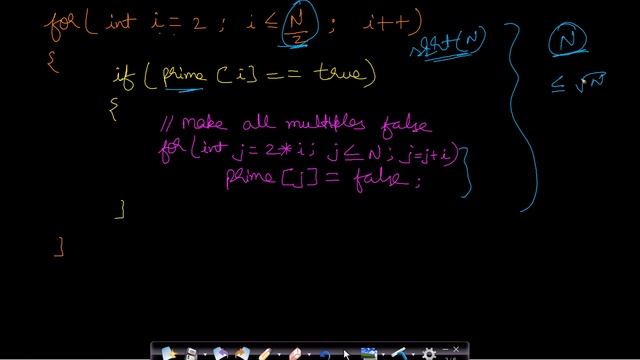 for( int i = 2 ; i ≤ N/2 ; i++)
sqrt(N)
N
{
if ( prime [i] == true)
≤ √N
{
// make all multiples false
for( int j = 2*i ; j ≤ N ; j=j+i)
prime [j] = false ;
}
}